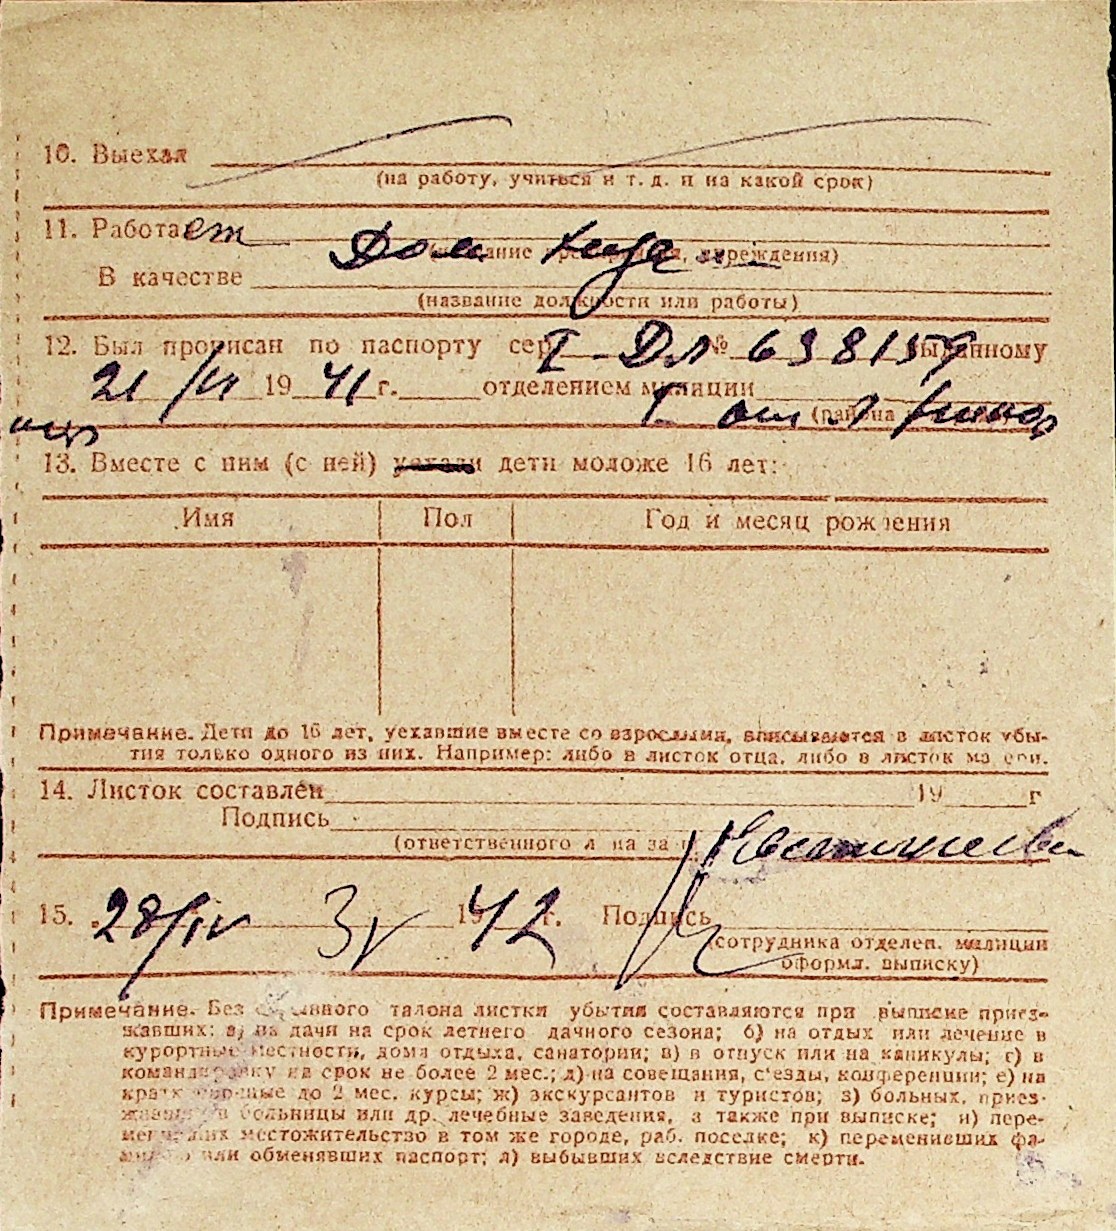 10. Выехал
(на работу, учиться и т. д. и на какой срок)
11. Работает
Дом
В качестве
(название должности или работы)
12. Был прописан по паспорту сер. I ДЛ № 638159 выданному
21/VI 19 41 г. отделением милиции
(района
13. Вместе с ним (с ней) уехали дети моложе 16 лет:
Имя Пол Год и месяц рождения
Примечание. Дети до 16 лет, уехавшие вместе со взрослыми, вписываются в листок убы-
тия только одного из них. Например: либо в листок отца, либо в листок матери.
14. Листок составлен 19 г
Подпись
(ответственного л на за п
15. 28/IV 3/V 1942 г. Подпись
(сотрудника отделен. милиции
оформл. выписку)
Примечание. Без отрывного талона листки убытия составляются при выписке приез-
жавших: а) на дачи на срок летнего дачного сезона; б) на отдых или лечение в
курортные местности, дома отдыха, санатории; в) в отпуск или на каникулы; г) в
командировку на срок не более 2 мес.; д) на совещания, с'езды, конференции; е) на
краткосрочные до 2 мес. курсы; ж) экскурсантов и туристов; з) больных, приез-
жавших в больницы или др. лечебные заведения, а также при выписке; и) пере-
менивших местожительство в том же городе, раб. поселке; к) переменивших фа-
милию или обменявших паспорт; л) выбывших вследствие смерти.